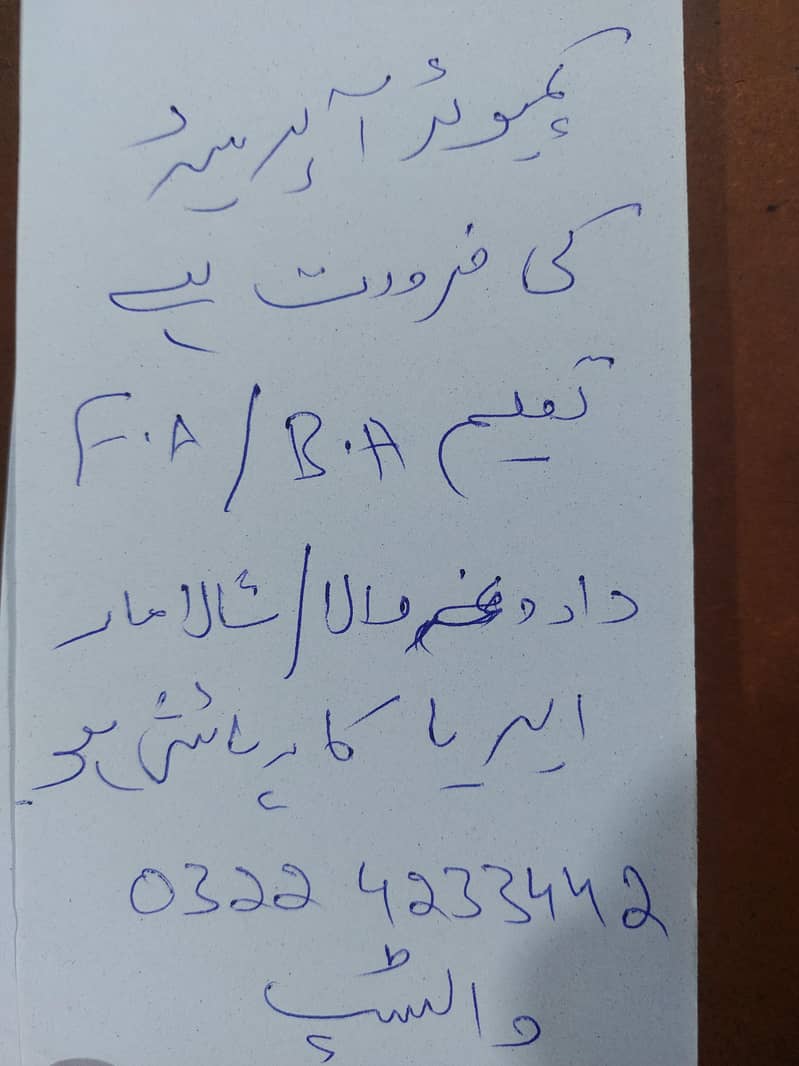 کمپیوٹر آپریٹر
کی ضرورت ہے
تعلیم F.A / B.A
داروغہ والا / شالا مار
ایریا کا رہائشی ہو
0322 4233442
واٹسپ